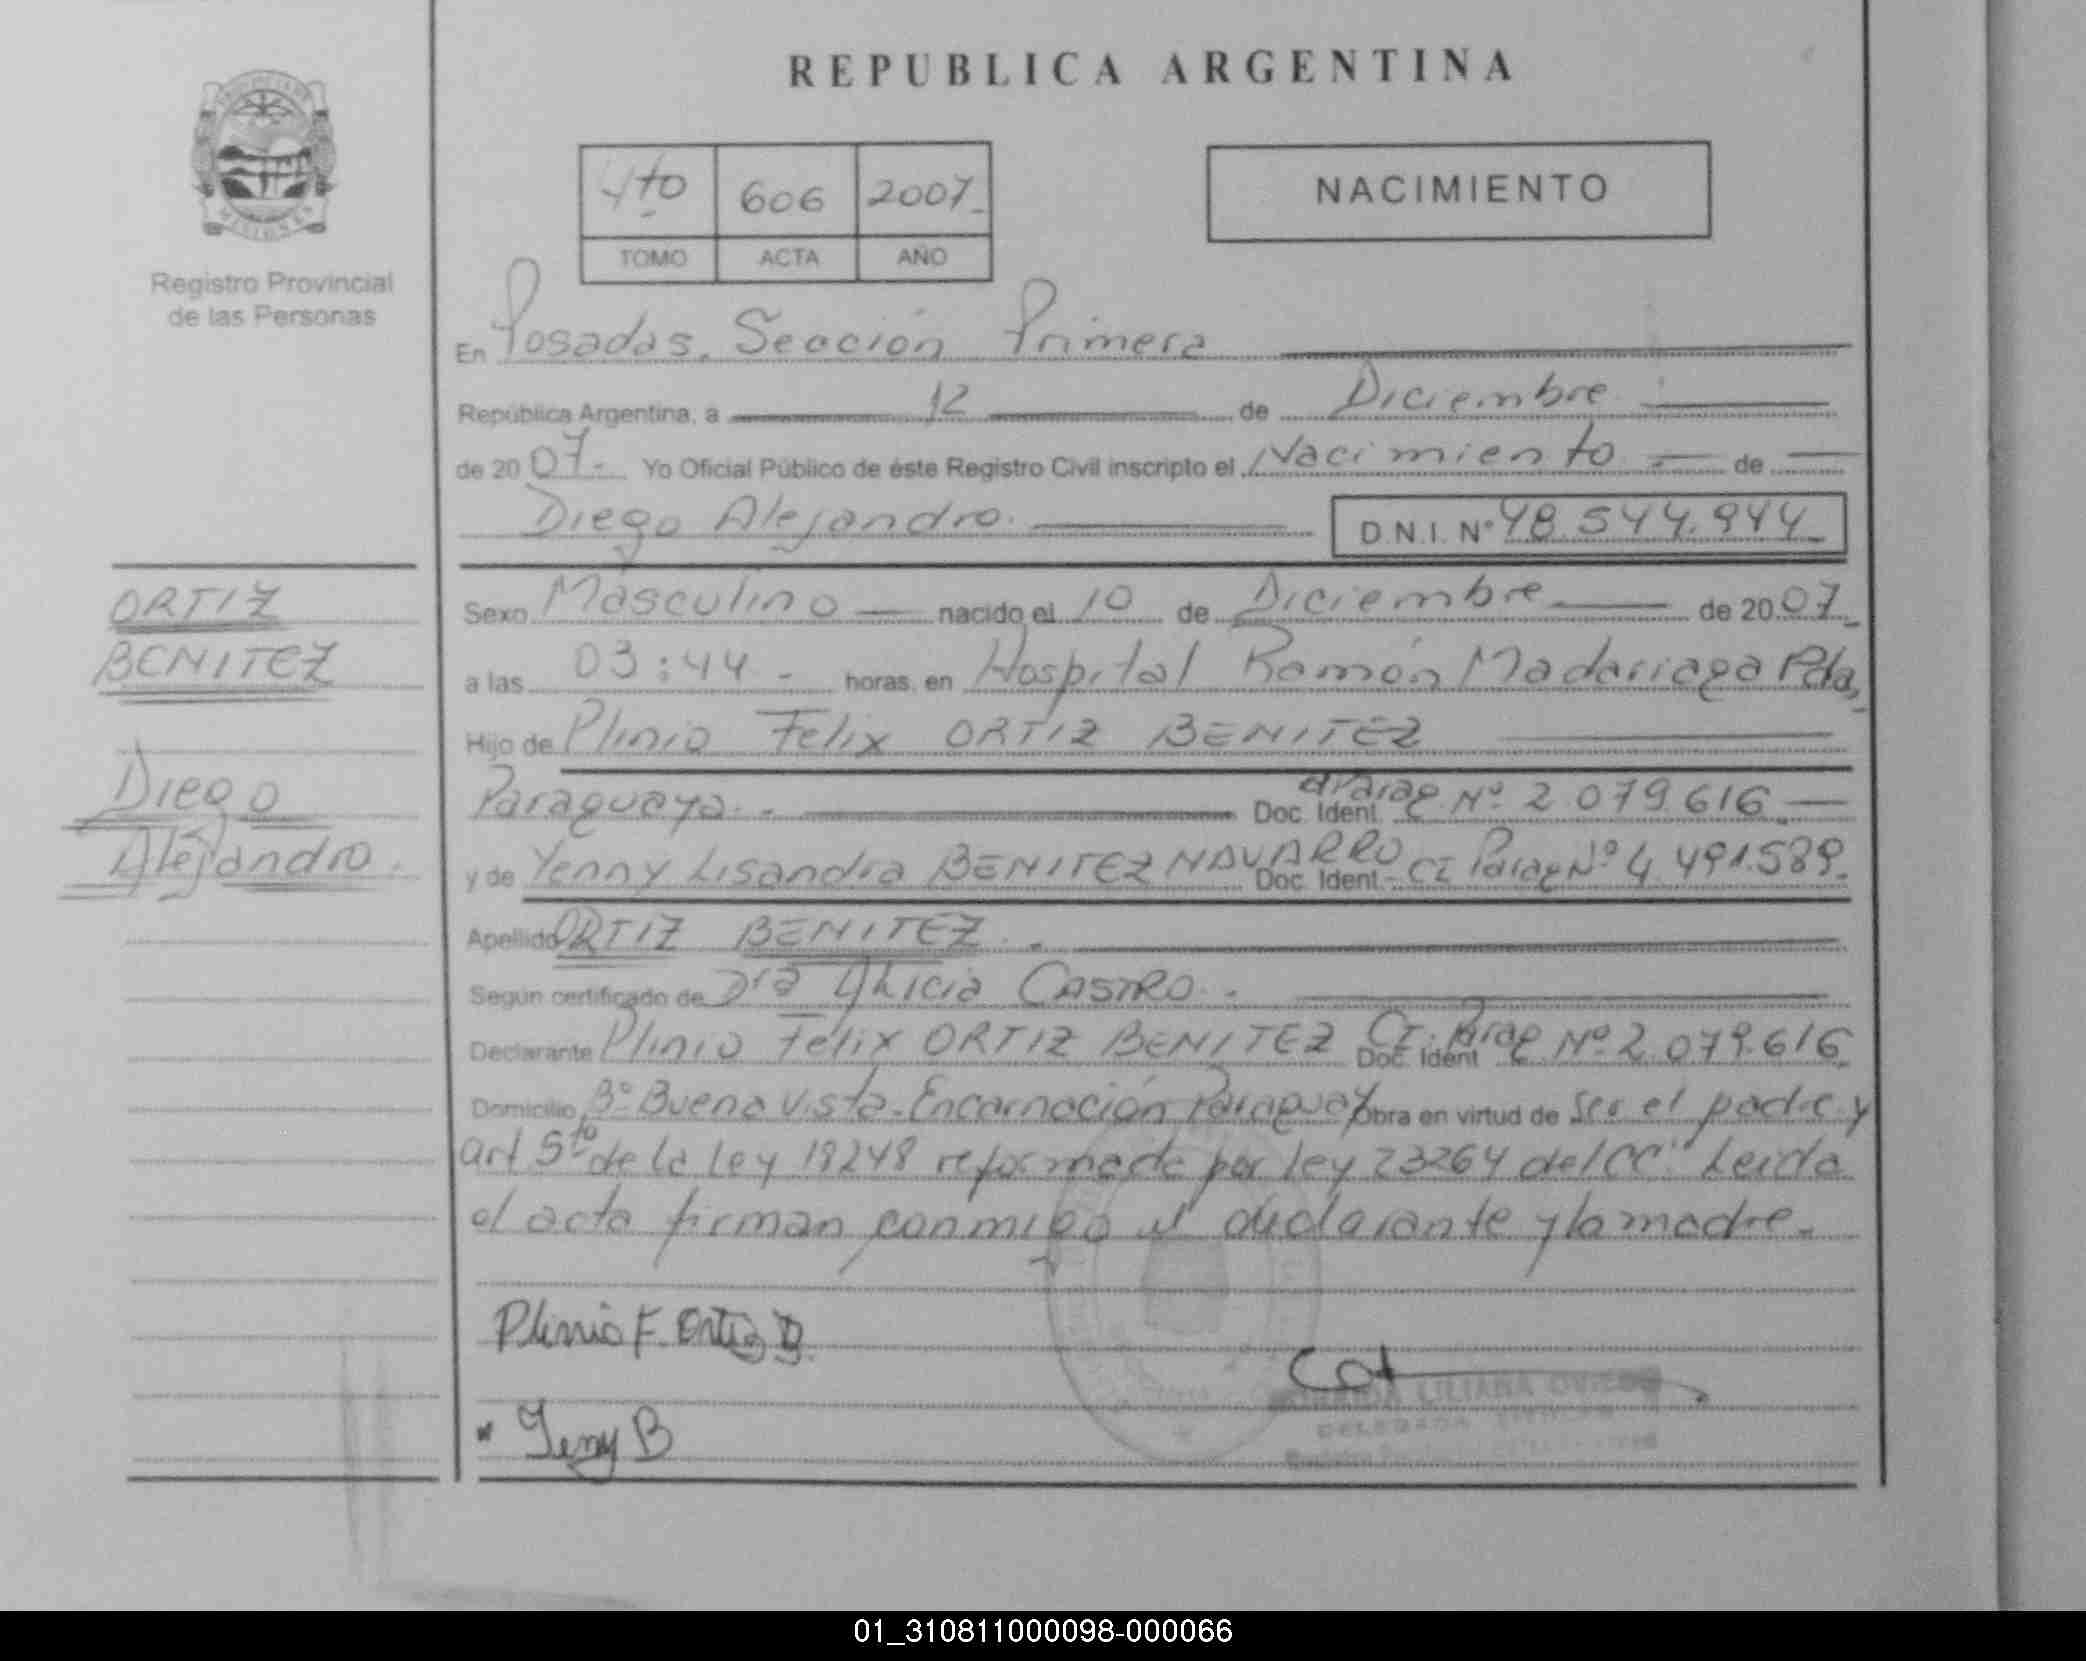 REPUBLICA ARGENTINA
4to 606 2007
TOMO ACTA AÑO
NACIMIENTO
MISIONES
Registro Provincial
de las Personas
En Posadas. Sección Primera
República Argentina, a 12 de Diciembre
de 2007. Yo Oficial Público de éste Registro Civil inscripto el Nacimiento de
Diego Alejandro. D.N.I. Nº 48.544.944
ORTIZ
BENITEZ
Diego
Alejandro.
Sexo Masculino nacido el 10 de Diciembre de 2007
a las 03:44 horas, en Hospital Ramón Madariaga Pdas
Hijo de Plinio Felix ORTIZ BENITEZ
Paraguaya. Doc. Ident. CI Parag Nº 2.079.616
y de Yenny Lisandra BENITEZ NAVARRO Doc. Ident. CI Parag Nº 4.491.589.
Apellido ORTIZ BENITEZ.
Según certificado de Dra Alicia CASTRO.
Declarante Plinio Felix ORTIZ BENITEZ Doc. Ident CI. Parag Nº 2.079.616
Domicilio Bº Buena Vista-Encarnación Paraguay Obra en virtud de ser el padre y
art 5to de la ley 18248 reformada por ley 23264 del CC. Leida
el acta firman conmigo el declarante y la madre.
Plinio F. Ortiz B.
Yeny B
LILIANA
DELEGADA
01_310811000098-000066